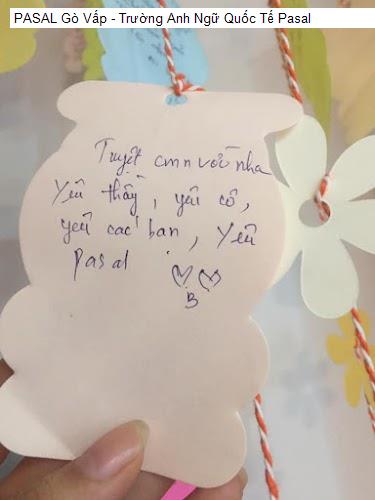 PASAL Gò Vấp - Trường Anh Ngữ Quốc Tế Pasal
Tuyệt cmn vời nha
Yêu thầy, yêu cô,
yêu các bạn, Yêu
Pasal
B